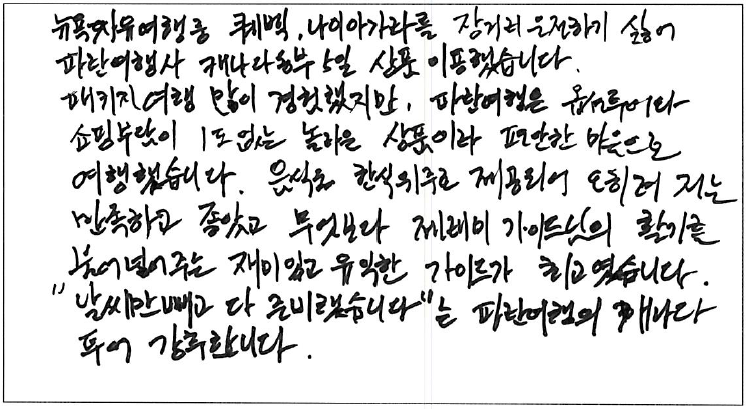 뉴욕자유여행중 퀘벡, 나이아가라를 장거리 운전하기 싫어
파란여행사 캐나다동부 5일 상품 이용했습니다.
패키지여행 많이 경험했지만, 파란여행은 옵션투어다
쇼핑부담이 1도 없는 놀라운 상품이라 편안한 마음으로
여행했습니다. 음식도 한식위주로 제공되어 오히려 저는
만족하고 좋았고 무엇보다 제레미 가이드님의 활기를
불어넣어주는 재미있고 유익한 가이드가 최고였습니다.
"날씨만 빼고 다 준비했습니다"는 파란여행의 캐나다
투어 강추합니다.